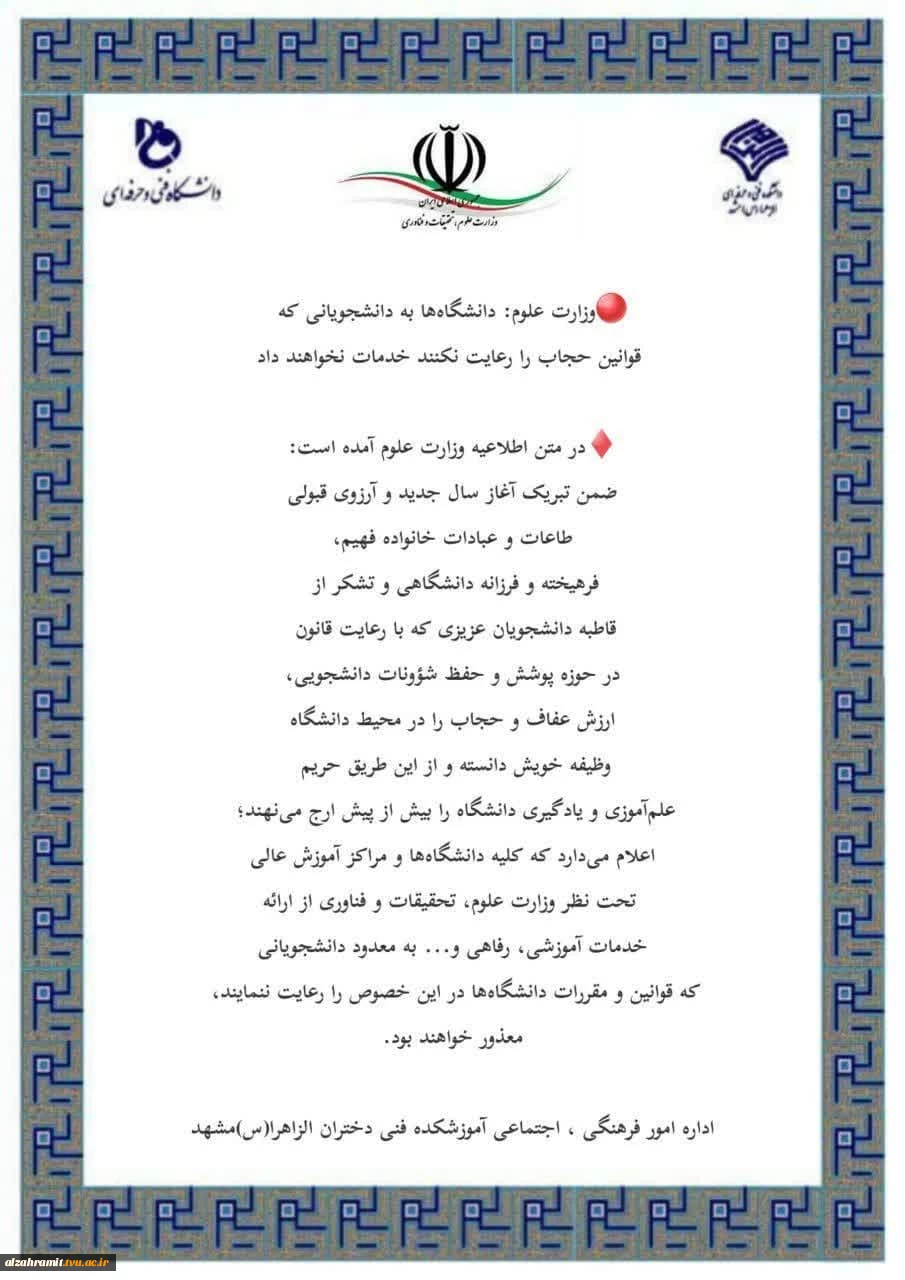 دانشگاه فنی و حرفه‌ای
جمهوری اسلامی ایران
وزارت علوم، تحقیقات و فناوری
دانشکده فنی و حرفه‌ای
وزارت علوم: دانشگاه‌ها به دانشجویانی که
قوانین حجاب را رعایت نکنند خدمات نخواهند داد
در متن اطلاعیه وزارت علوم آمده است:
ضمن تبریک آغاز سال جدید و آرزوی قبولی
طاعات و عبادات خانواده فهیم،
فرهیخته و فرزانه دانشگاهی و تشکر از
قاطبه دانشجویان عزیزی که با رعایت قانون
در حوزه پوشش و حفظ شؤونات دانشجویی،
ارزش عفاف و حجاب را در محیط دانشگاه
وظیفه خویش دانسته و از این طریق حریم
علم‌آموزی و یادگیری دانشگاه را بیش از پیش ارج می‌نهند؛
اعلام می‌دارد که کلیه دانشگاه‌ها و مراکز آموزش عالی
تحت نظر وزارت علوم، تحقیقات و فناوری از ارائه
خدمات آموزشی، رفاهی و... به معدود دانشجویانی
که قوانین و مقررات دانشگاه‌ها در این خصوص را رعایت ننمایند،
معذور خواهند بود.
اداره امور فرهنگی ، اجتماعی آموزشکده فنی دختران الزاهرا(س)مشهد
alzahramit.tvu.ac.ir